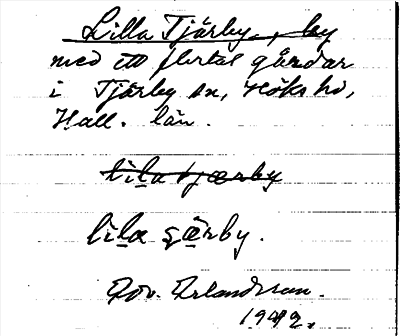 Lilla Tjärby, by
med ett flertal gårdar
i Tjärby sn, Höks hd,
Hall. län.
lila tjærby
lila çärby.
Gov. Erlandsson.
1942.